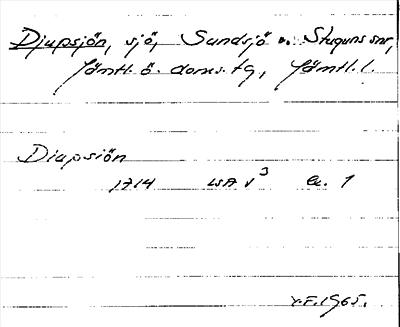 Djupsjön, sjö, Sundsjö o. Stuguns snr,
Jämtl. ö. doms. tg, Jämtl. l.
Diupsiön
1714 LSA V³ Ea. 1
Y.F. 1965.